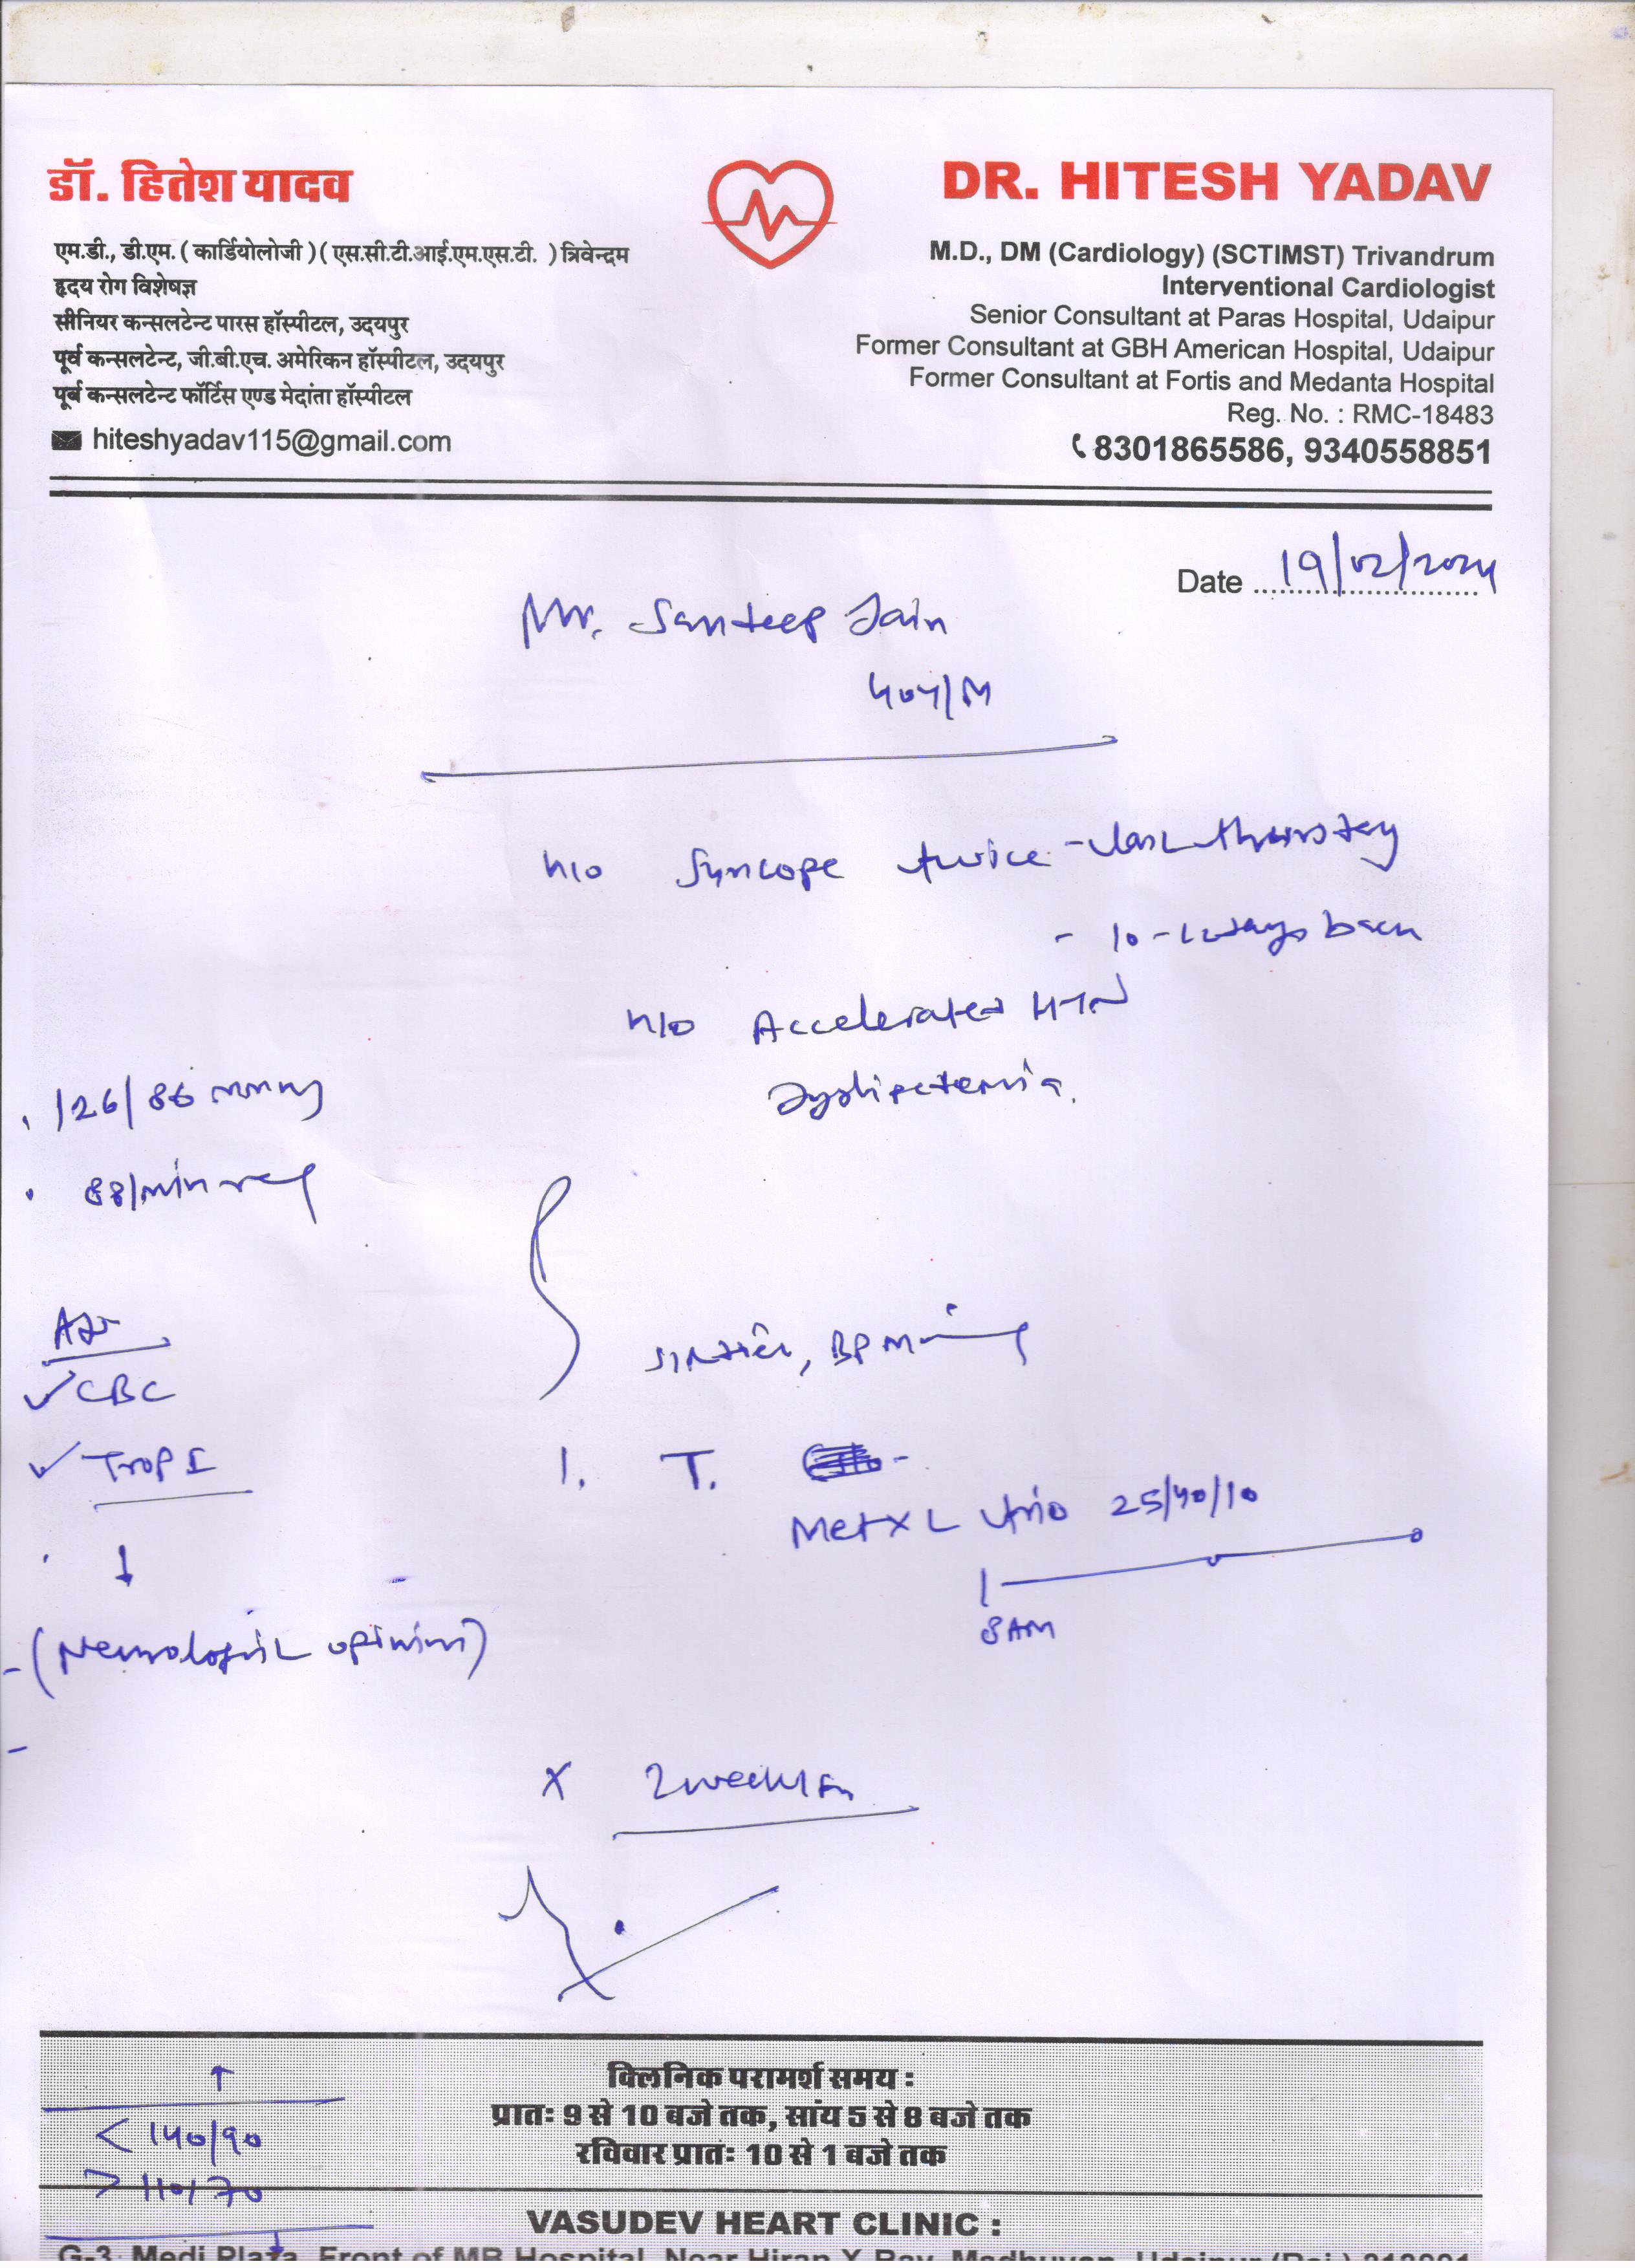 डॉ. हितेश यादव
एम.डी., डी.एम. ( कार्डियोलोजी ) ( एस.सी.टी.आई.एम.एस.टी. ) त्रिवेन्द्रम
हृदय रोग विशेषज्ञ
सीनियर कन्सलटेन्ट पारस हॉस्पीटल, उदयपुर
पूर्व कन्सलटेन्ट, जी.बी.एच. अमेरिकन हॉस्पीटल, उदयपुर
पूर्व कन्सलटेन्ट फॉर्टिस एण्ड मेदांता हॉस्पीटल
hiteshyadav115@gmail.com
DR. HITESH YADAV
M.D., DM (Cardiology) (SCTIMST) Trivandrum
Interventional Cardiologist
Senior Consultant at Paras Hospital, Udaipur
Former Consultant at GBH American Hospital, Udaipur
Former Consultant at Fortis and Medanta Hospital
Reg. No. : RMC-18483
8301865586, 9340558851
Date 19/02/2024
Mr. Sandeep Jain
40y/M
H/o Syncope twice - last thursday
- 10-12 days back
H/o Accelerated HTN
Dyslipidemia.
126/86 mmHg
88/min reg
Adv
CBC
Trop I
(Neurologist opinion)
BP
1. T.
Met XL trio 25/40/10
8AM
x 2 weeks
< 140/90
> 110/70
क्लिनिक परामर्श समय :
प्रातः 9 से 10 बजे तक, सांय 5 से 8 बजे तक
रविवार प्रातः 10 से 1 बजे तक
VASUDEV HEART CLINIC :
G-3, Medi Plaza, Front of MB Hospital, Near Hiran X-Ray, Madhuvan, Udaipur (Raj.) 313001